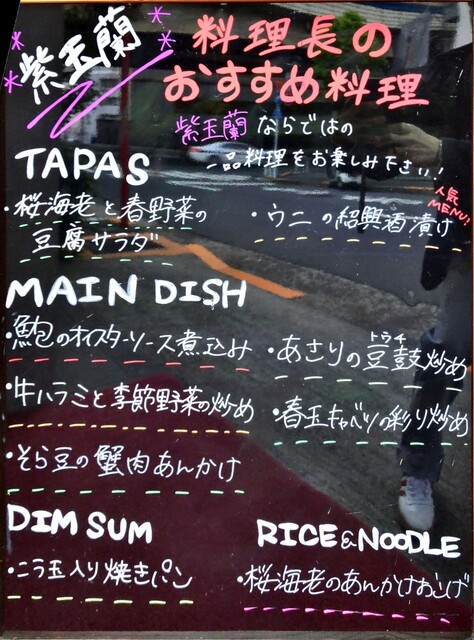 紫玉蘭
料理長の
おすすめ料理
紫玉蘭ならではの
一品料理をお楽しみ下さい!
TAPAS
・桜海老と春野菜の
豆腐サラダ
人気
MENU!
・ウニの紹興酒漬け
MAIN DISH
・鮑のオイスターソース煮込み
・牛ハラミと季節野菜の炒め
・そら豆の蟹肉あんかけ
トウチ
・あさりの豆鼓炒め
・春玉キャベツの彩り炒め
DIM SUM
・ニラ玉入り焼きパン
RICE & NOODLE
・桜海老のあんかけおこげ